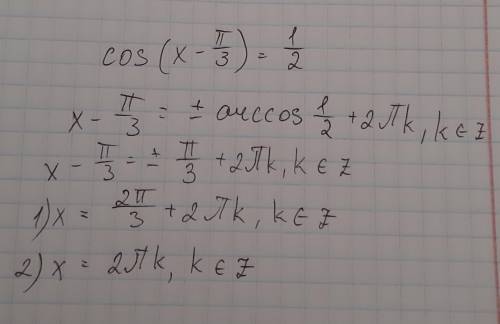 cos(x - π/3) = 1/2
x - π/3 = ± arccos 1/2 + 2πk, k ∈ Z
x - π/3 = ± π/3 + 2πk, k ∈ Z
1) x = 2π/3 + 2πk, k ∈ Z
2) x = 2πk, k ∈ Z